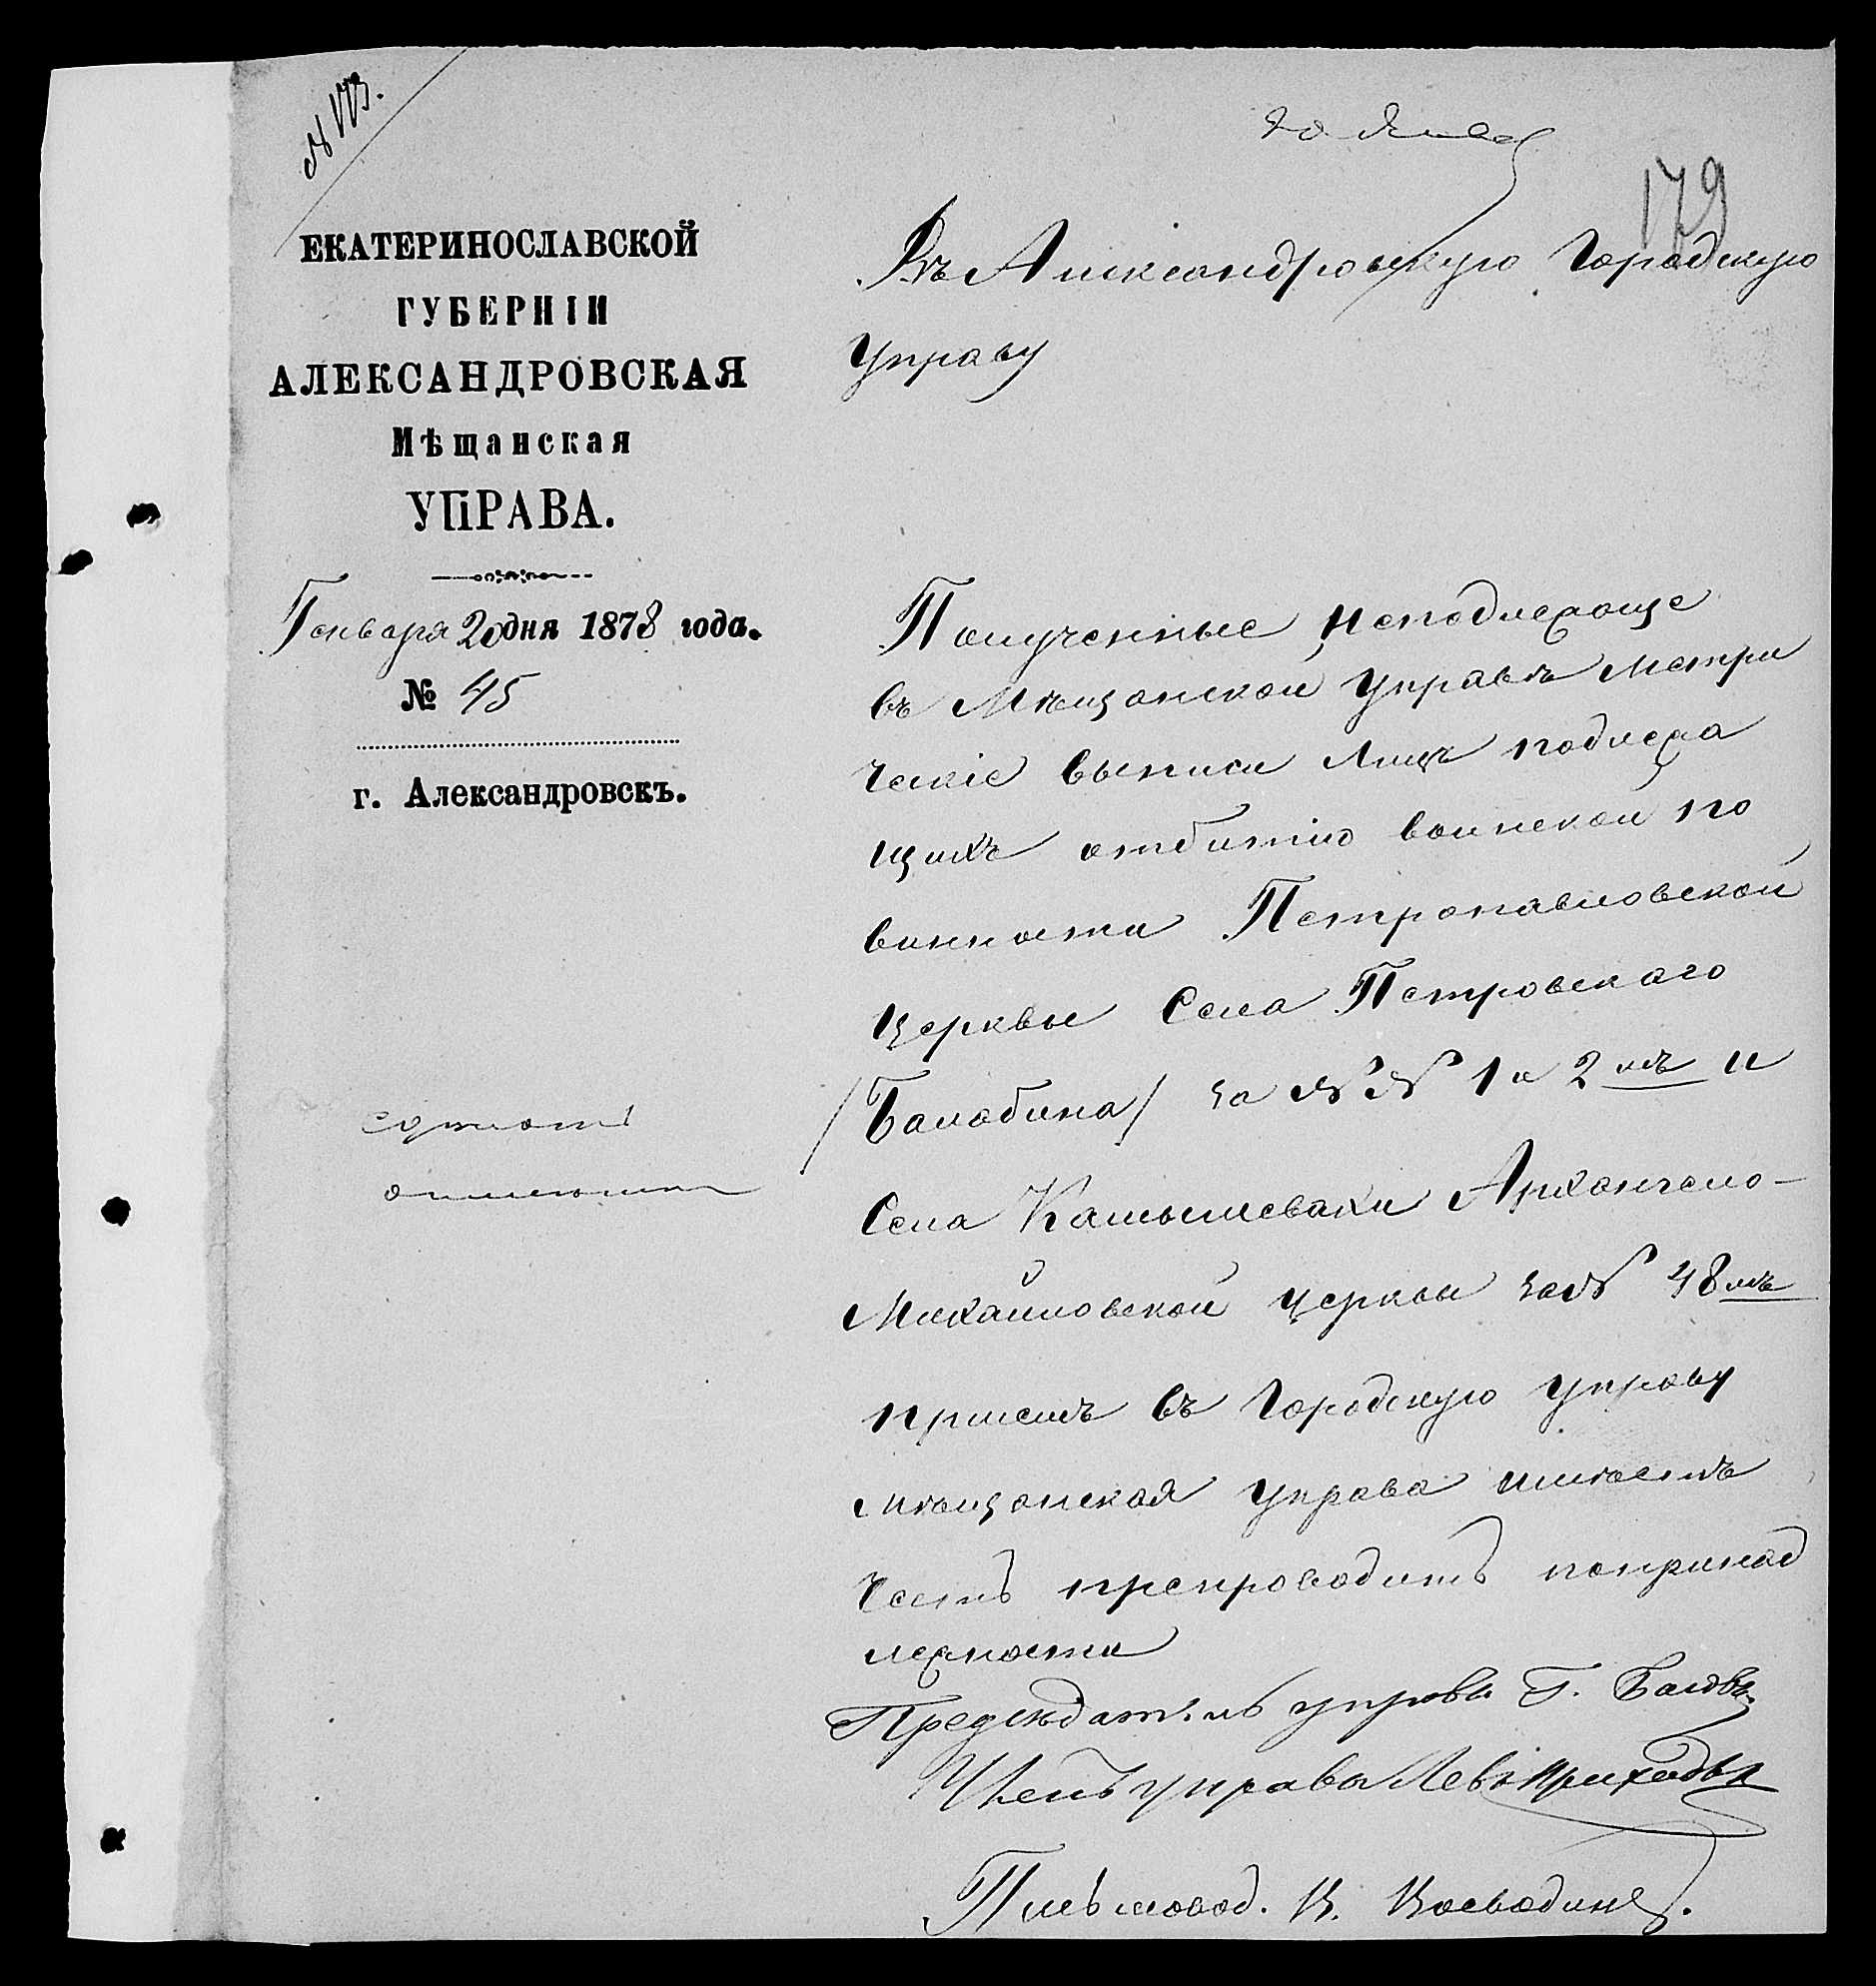 № 173.
20 Янва
179
ЕКАТЕРИНОСЛАВСКОЙ
ГУБЕРНІИ
АЛЕКСАНДРОВСКАЯ
Мѣщанская
УПРАВА.
Генваря 20 дня 1878 года.
№ 45
г. Александровскъ.
Въ Александровскую Городскую
Управу
Полученные неподлежаще
въ Мѣщанской Управѣ метри
ческіе выписи лицъ подлежа
щихъ отбитію воинской по
винности Петропавловской
церквы Села Петровскаго
/Балабина/ за №№ 1 и 2мъ и
Села Камышевахи Архангело-
Михайловской церквы за № 48мъ
приемъ въ Городскую управу
мѣщанская управа имѣетъ
честь препроводить попринад
лежности
Предсѣдатель управы Г.
Членъ управы Левъ
Письмовод. В. Воеводинъ.